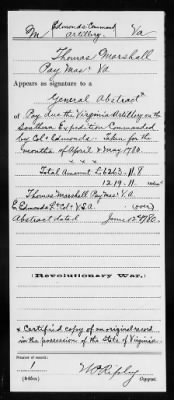 M Edmonds's Command Artillery. Va
Thomas Marshall
Pay Mas. Va
Appears as signature to a
General Abstract
of Pay due the Virginia Artillery on the
Southern Expedition Commanded
by Col. Edmonds. Taken for the
months of April & May 1780.
x x x
Total Amount £6263.11.8
12.19.11
Thomas Marshall Pay Mas. V.A.
E. Edmonds Lt. Col. V.S.A. (over)
Abstract dated June 12th 1780.
Revolutionary War.
x Certified copy of an original record
in the possession of the State of Virginia.
Number of record:
1
Copyist.